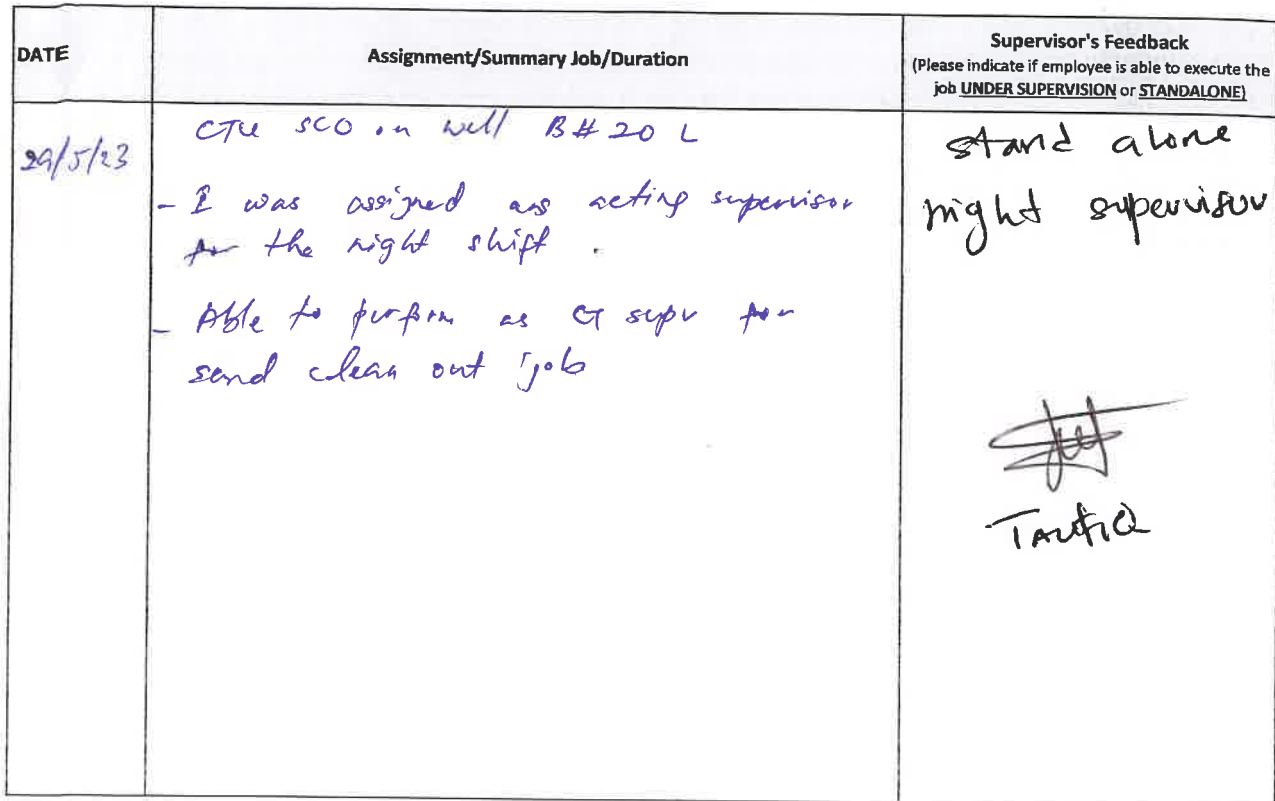 DATE
Assignment/Summary Job/Duration
Supervisor's Feedback
(Please indicate if employee is able to execute the
job UNDER SUPERVISION or STANDALONE)
29/5/23
CTU SCO on well B#20 L
- I was assigned as acting supervisor
for the night shift.
- Able to perform as CT supv for
send clean out job
stand alone
night supervisor
TAufiQ